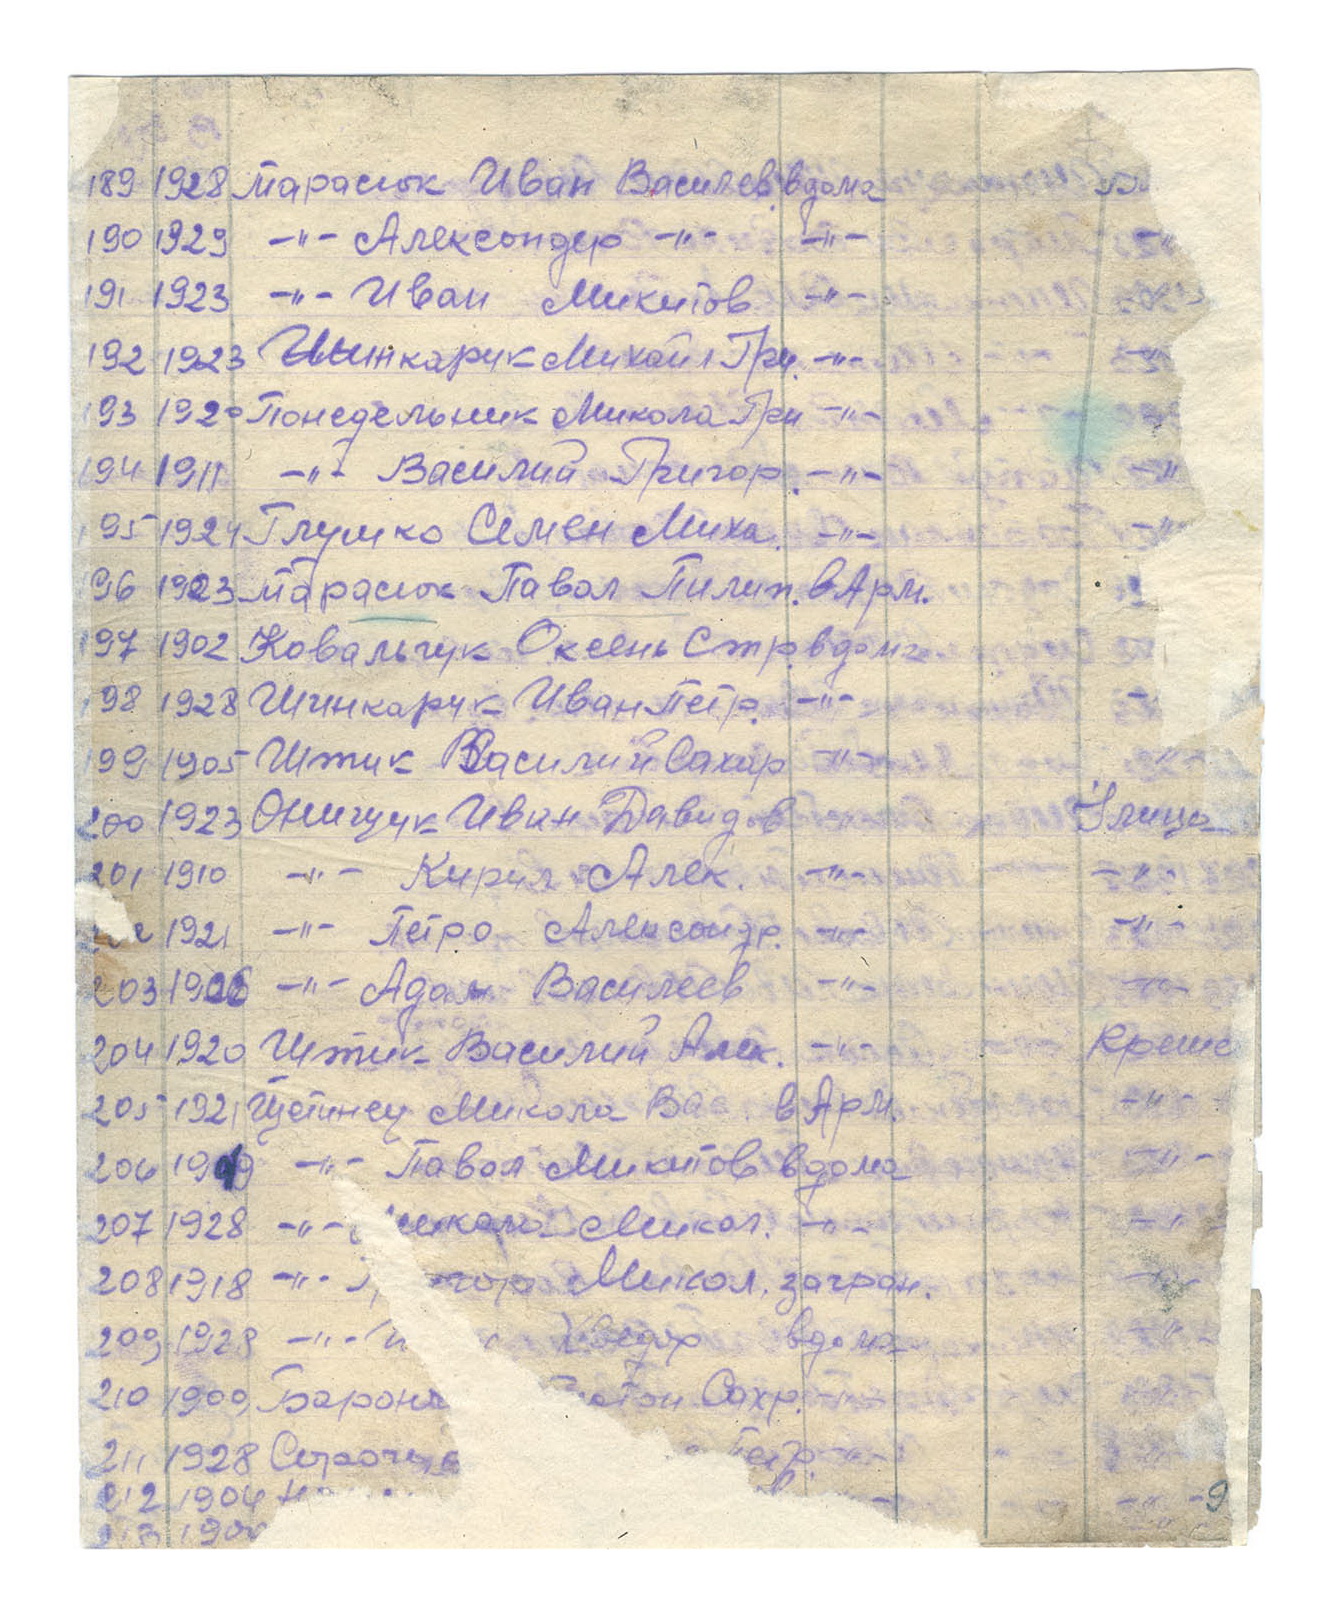 189 1928 Тарасюк Иван Василев. вдома
190 1929 -"- Александер -"- -"- -"-
191 1923 -"- Иван Микитов -"-
192 1923 Шинкарук Михайл Гри. -"-
193 1920 Понедельник Микола Гри -"-
194 1911 -"- Василий Григор. -"- -"-
195 1924 Глушко Семен Миха. -"- -"-
96 1923 Тарасюк Павол Пилип. в Арм.
197 1902 Ковальчук Оксень Стр. вдома
198 1928 Шинкарук Иван Петр. -"-
199 1905 Штик Василий Сахар -"- -"-
200 1923 Онищук Иван Давидов -"- Улица
201 1910 -"- Кирил Алек. -"- -"-
1921 -"- Петро Александр. -"- -"-
203 1906 -"- Адам Василеев -"- -"-
204 1920 Штик Василий Алек. -"- Креме
205 1921 Щетинец Микола Вас. в Арм. -"-
206 19 9 -"- Павол Микитов вдома -"-
207 1928 -"- Микола Микол. -"- -"-
208 1918 -"- Григор Микол. загран.
209 1928 -"- Хведор вдома -"-
210 1909 Барон Сахр. -"-
211 1928 Петр. -"-
212 1904 -"- 9
213